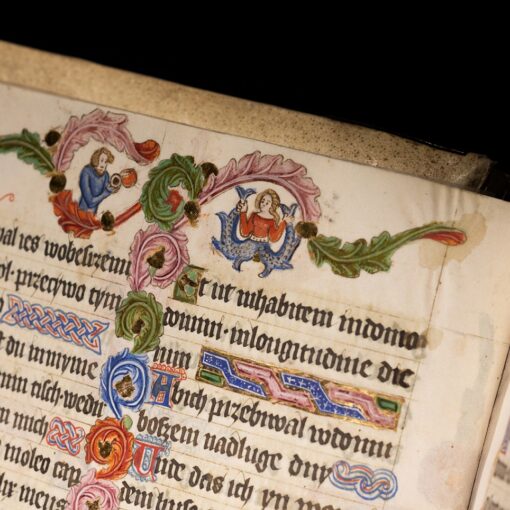 wal ies wobesrzeni
ol przeciwo tym
t du inwyme
tisch wedir
mich
moleo cap
lix meus
Et ut inhabitem indomo
domini · inlongitudine die
rum
Abich przebiwal wdomu
boszem nadluge dny
das ich yn
dem huse